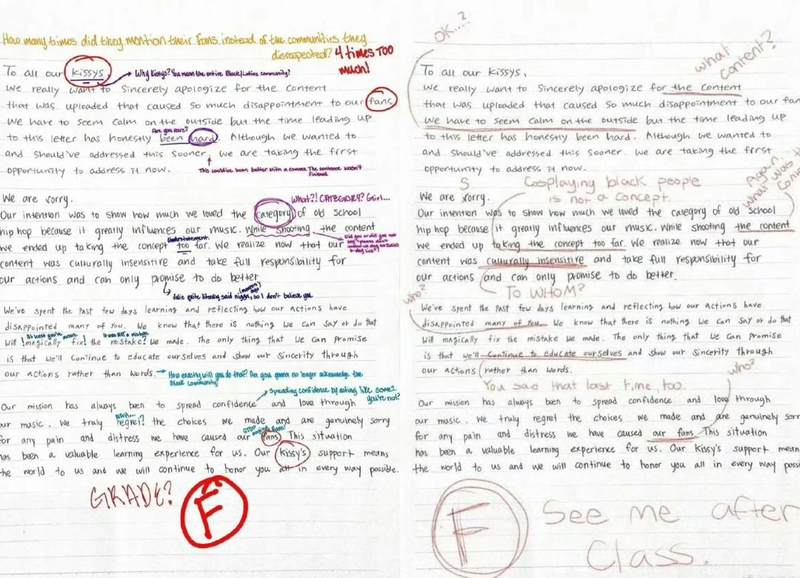 How many times did they mention their Fans instead of the communities they
disrespected? 4 times TOO
much!
To all our Kissys,
Why Kissys? You mean the entire Black/Ladies community?
We really want to Sincerely apologize for the content
that was uploaded that caused so much disappointment to our fans.
We have to seem calm on the outside but the time leading up
Are you sure?
to this letter has honestly been hard. Although we wanted to
and should've addressed this sooner we are taking the first
opportunity to address it now.
This could've been better with a comma. The sentence wasn't
finished
We are sorry.
What?! CATEGORY? Girl...
Our intention was to show how much we loved the category of old school
hip hop because it greatly influences our music. While shooting the content
we ended up taking the concept too far. We realize now that our
content was culturally insensitive and take full responsibility for
our actions and can only promise to do better.
We've spent the past few days learning and reflecting how our actions have
disappointed many of you. We know that there is nothing we can say or do that
will magically fix the mistake we made. The only thing that we can promise
is that we'll continue to educate ourselves and show our sincerity through
our actions rather than words.
How exactly will you do that? Are you gonna no longer acknowledge the
black community?
Spreading confidence by
Our mission has always been to spread confidence and love through
our music. We truly regret the choices we made and are genuinely sorry
for any pain and distress we have caused our fans. This situation
has been a valuable learning experience for us. Our Kissy's support means
the world to us and we will continue to honor you all in every way possible.
GRADE?
F
OK...?
what
content?
To all our Kissys,
We really want to Sincerely apologize for the content
that was uploaded that caused so much disappointment to our fans
We have to seem calm on the outside but the time leading up
to this letter has honestly been hard. Although we wanted to
and should've addressed this sooner we are taking the first
opportunity to address it now.
Again,
what was the
S
Cosplaying black people
is not a concept.
We are sorry.
Our intention was to show how much we loved the category of old school
hip hop because it greatly influences our music. While shooting the content
we ended up taking the concept too far. We realize now that our
content was culturally insensitive and take full responsibility for
our actions and can only promise to do better.
who?
To WHOM?
We've spent the past few days learning and reflecting how our actions have
disappointed many of you. We know that there is nothing we can say or do that
will magically fix the mistake we made. The only thing that we can promise
is that we'll continue to educate ourselves and show our sincerity through
our actions rather than words.
who?
You said that last time, too.
Our mission has always been to spread confidence and love through
our music. We truly regret the choices we made and are genuinely sorry
for any pain and distress we have caused our fans. This situation
has been a valuable learning experience for us. Our Kissy's support means
the world to us and we will continue to honor you all in every way possible.
F
See me after
Class.